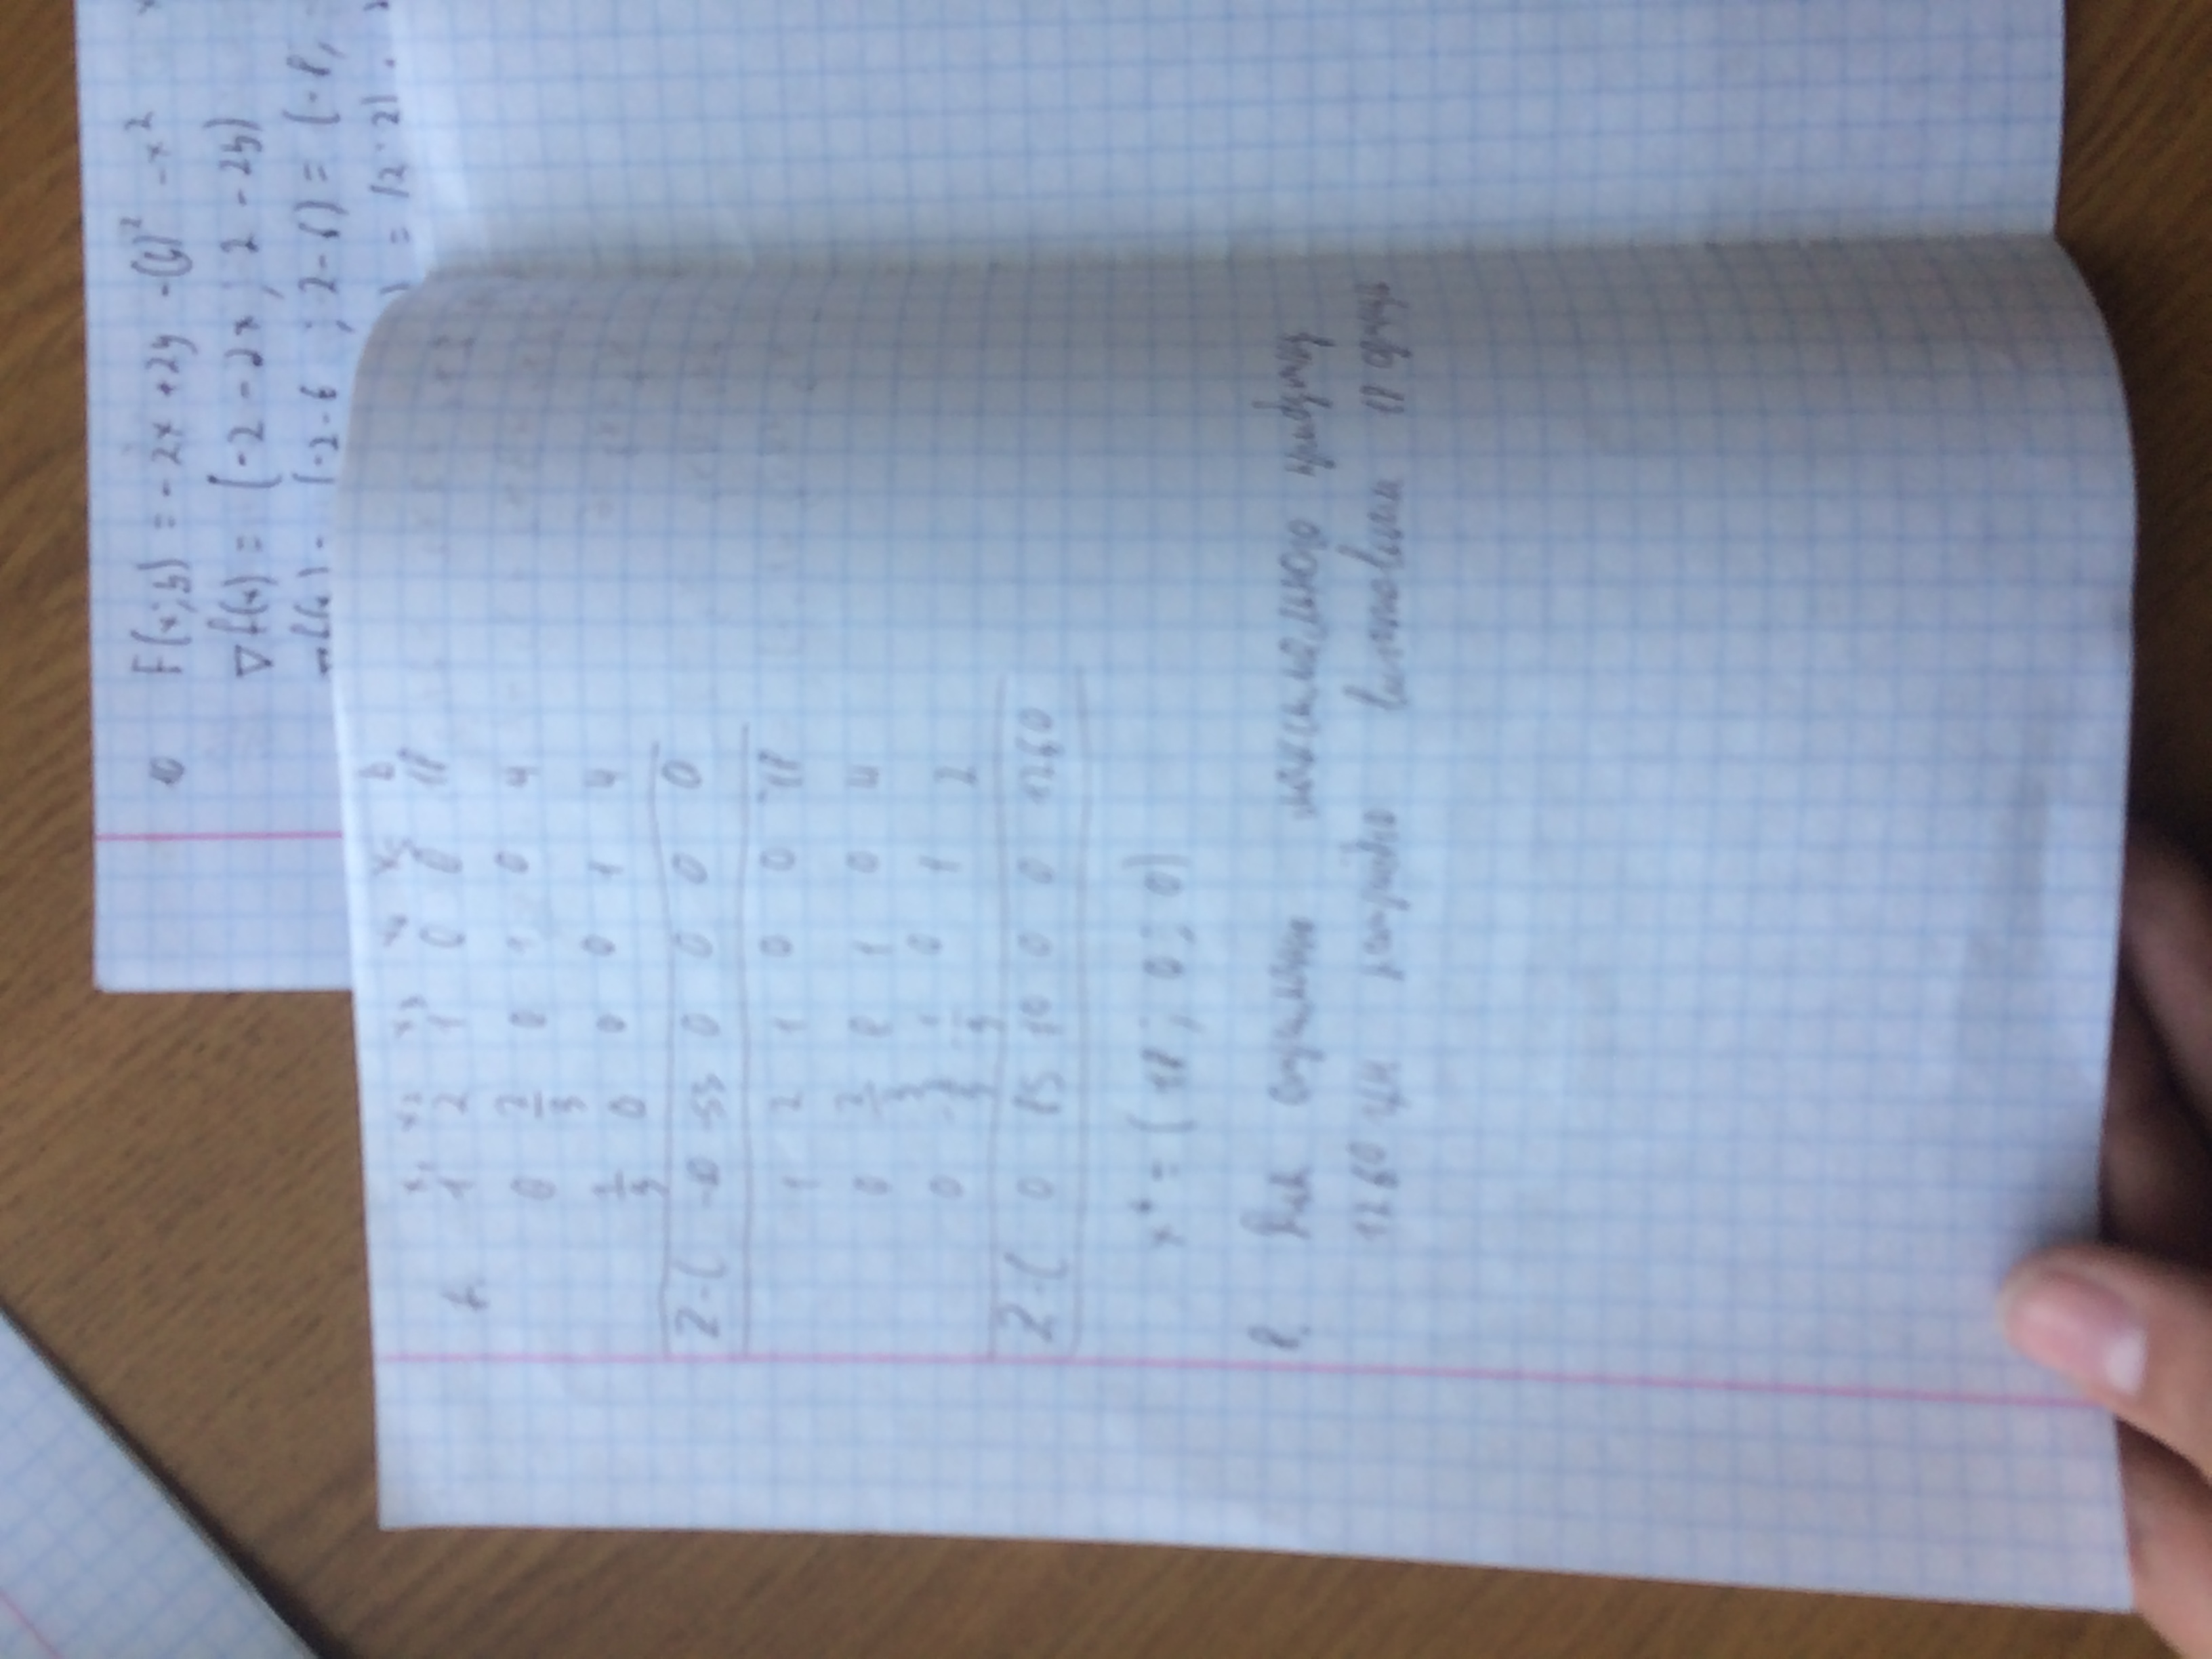 F(x;y) = -2x +2y -(y)² -x²
∇f(x) = (-2 -2x ; 2 -2y)
(-2-6 ; 2-6) = (-8,
) = (2;2) .
x₁ x₂ x₃ x₄ x₅ b
1 2 1 0 0 18
0 2/9 0 1 0 4
1/9 0 0 0 1 4
Z-C -55 0 0 0 0
1 2 1 0 0 18
0 2/9 0 1 0 4
0 -2/9 -1/9 0 1 2
Z-C 0 85 70 0 0 1260
x* = (18; 0; 0)
8. Для отримання максимального прибутку
1260 потрібно виготовити 18 одиниць